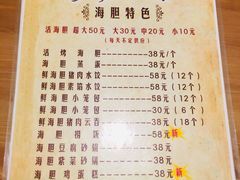 海胆特色
活海胆 超大50元 大30元 中20元 小10元
(每天不定供应)
活烤海胆 38元/个
海胆蒸蛋 38元/个
鲜海胆猪肉水饺 58元(12个)
鲜海胆素馅水饺 58元(12个)
鲜海胆小笼包 58元(12个)
鲜海胆小笼包 30元(6个)
鲜海胆猪肉云吞 58元(18个)
海胆捞饭 58元 新
海胆豆腐砂锅 38元
海胆紫菜砂锅 38元
海胆鸡蛋糕 38元 新